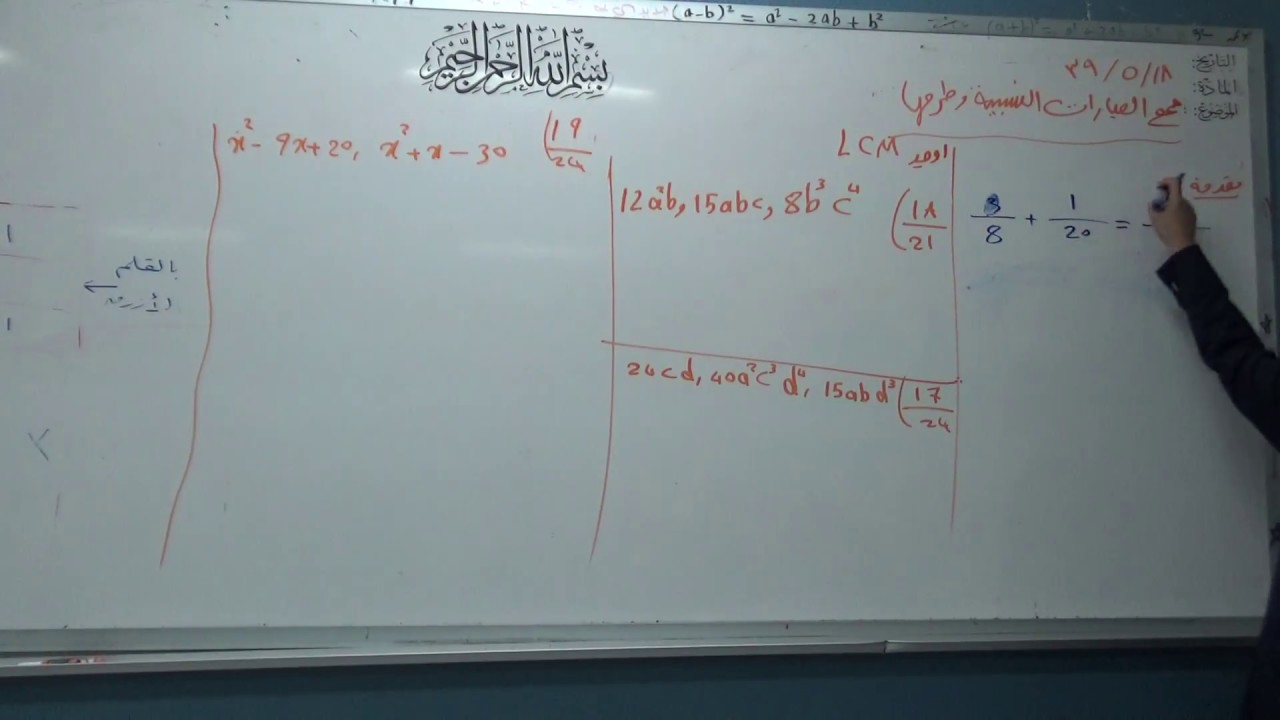 (a-b)² = a² - 2ab + b²
بسم الله الرحمن الرحيم
التاريخ: ١٨/٥/٣٩
المادة:
الموضوع: جمع العبارات النسبية وطرحها
مقدمة
8 + 1/20 =
اوجد LCM
18/21) 12a²b, 15abc, 8b³c⁴
17/24) 24cd, 40a²c³d⁴, 15abd³
19/24) x² - 9x + 20, x² + x - 30
بالقلم
1
1